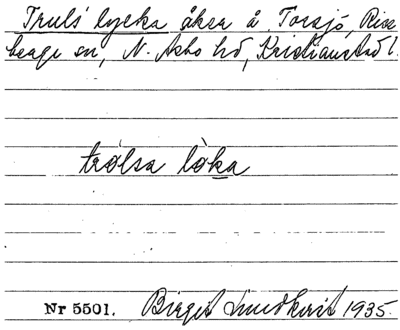 Truls' lycka åkra å Torsjö, Rise
berga sn, N. Åsbo hd, Kristianstad l.
trólsa lòka
Nr 5501. Birgit Lundkvist 1935.